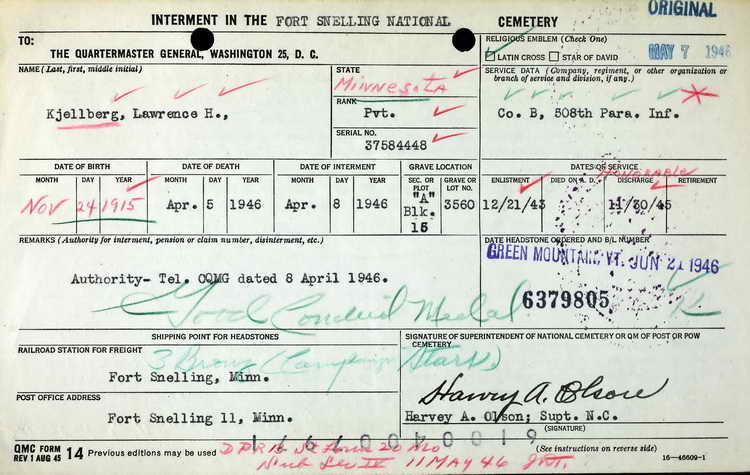 INTERMENT IN THE FORT SNELLING NATIONAL CEMETERY
ORIGINAL
TO:
THE QUARTERMASTER GENERAL, WASHINGTON 25, D. C.
RELIGIOUS EMBLEM (Check One)
LATIN CROSS STAR OF DAVID
MAY 7 1946
NAME (Last, first, middle initial)
Kjellberg, Lawrence H.,
STATE
Minnesota
RANK
Pvt.
SERIAL NO.
37584448
SERVICE DATA (Company, regiment, or other organization or branch of service and division, if any.)
Co. B, 508th Para. Inf.
DATE OF BIRTH DATE OF DEATH DATE OF INTERMENT GRAVE LOCATION DATES OF SERVICE
Honorable
MONTH DAY YEAR MONTH DAY YEAR MONTH DAY YEAR SEC. OR PLOT GRAVE OR LOT NO. ENLISTMENT DIED ON A. D. DISCHARGE RETIREMENT
Nov 24 1915 Apr. 5 1946 Apr. 8 1946 "A" Blk. 15 3560 12/21/43 11/30/45
REMARKS (Authority for interment, pension or claim number, disinterment, etc.)
Authority- Tel. OQMG dated 8 April 1946.
Good Conduct Medal
DATE HEADSTONE ORDERED AND B/L NUMBER
GREEN MOUNTAIN, VT. JUN 21 1946
6379805
SHIPPING POINT FOR HEADSTONES
3 Bronz (Campaign Stars)
RAILROAD STATION FOR FREIGHT
Fort Snelling, Minn.
POST OFFICE ADDRESS
Fort Snelling 11, Minn.
SIGNATURE OF SUPERINTENDENT OF NATIONAL CEMETERY OR QM OF POST OR POW CEMETERY
Harvey A. Olson
Harvey A. Olson; Supt. N.C.
(SIGNATURE)
QMC FORM
REV 1 AUG 45 14 Previous editions may be used
(See instructions on reverse side)
16—46609-1
11 MAY 46